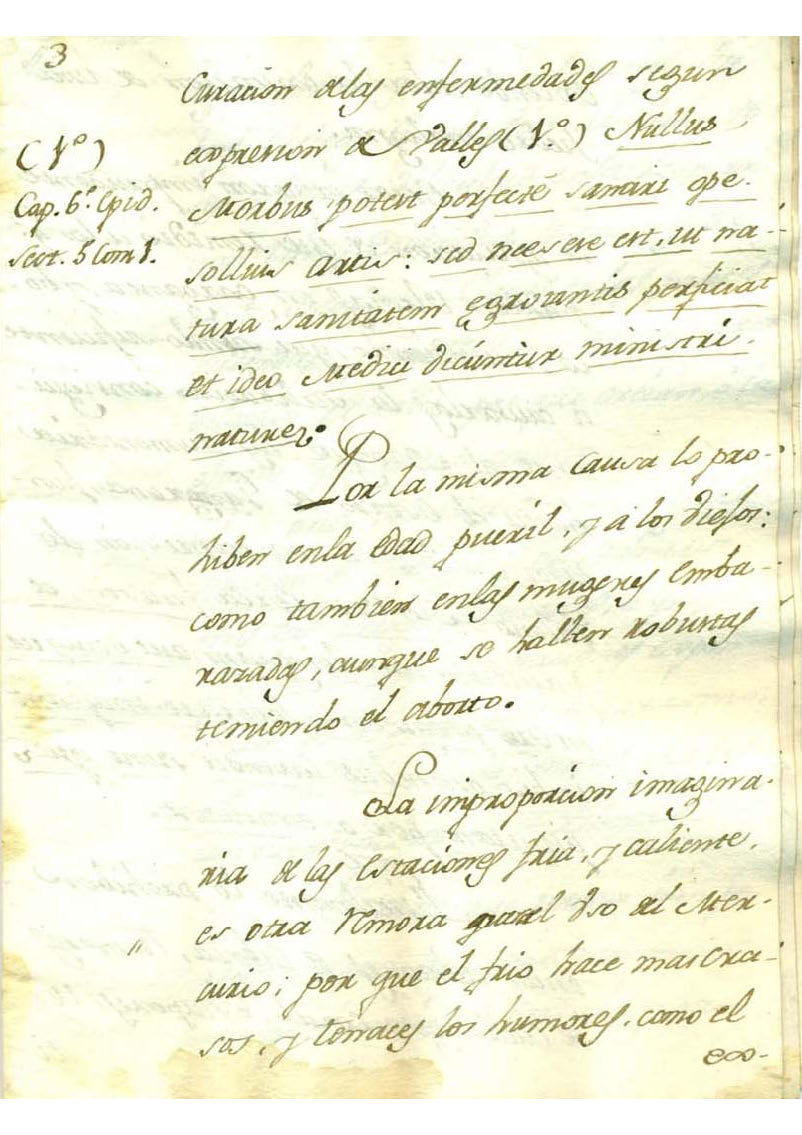 3
Curacion de las enfermedades segun
expresion de Valles (1.º) Nullus
(1º)
Cap. 6.º Epid.
Sect. 5 Com 1.
Morbus potest perfecté sanari ope
solluis Artis: sed necsese est, ut na-
tura sanitatem egrotantis perficiat
et ideo Medici dicuntur ministri
nature.
Por la misma causa lo pro-
hiben enla edad pueril, y á los viejos:
como tambien enlas mugeres emba-
razadas, aunque se hallen robustas
temiendo el aborto.
La improporcion imagina-
ria de las Estaciones fria, y caliente,
es otra remora para el Vso del Mer-
curio; por que el frio hace mas cra-
sos, y tenaces los humores, como el
ex-